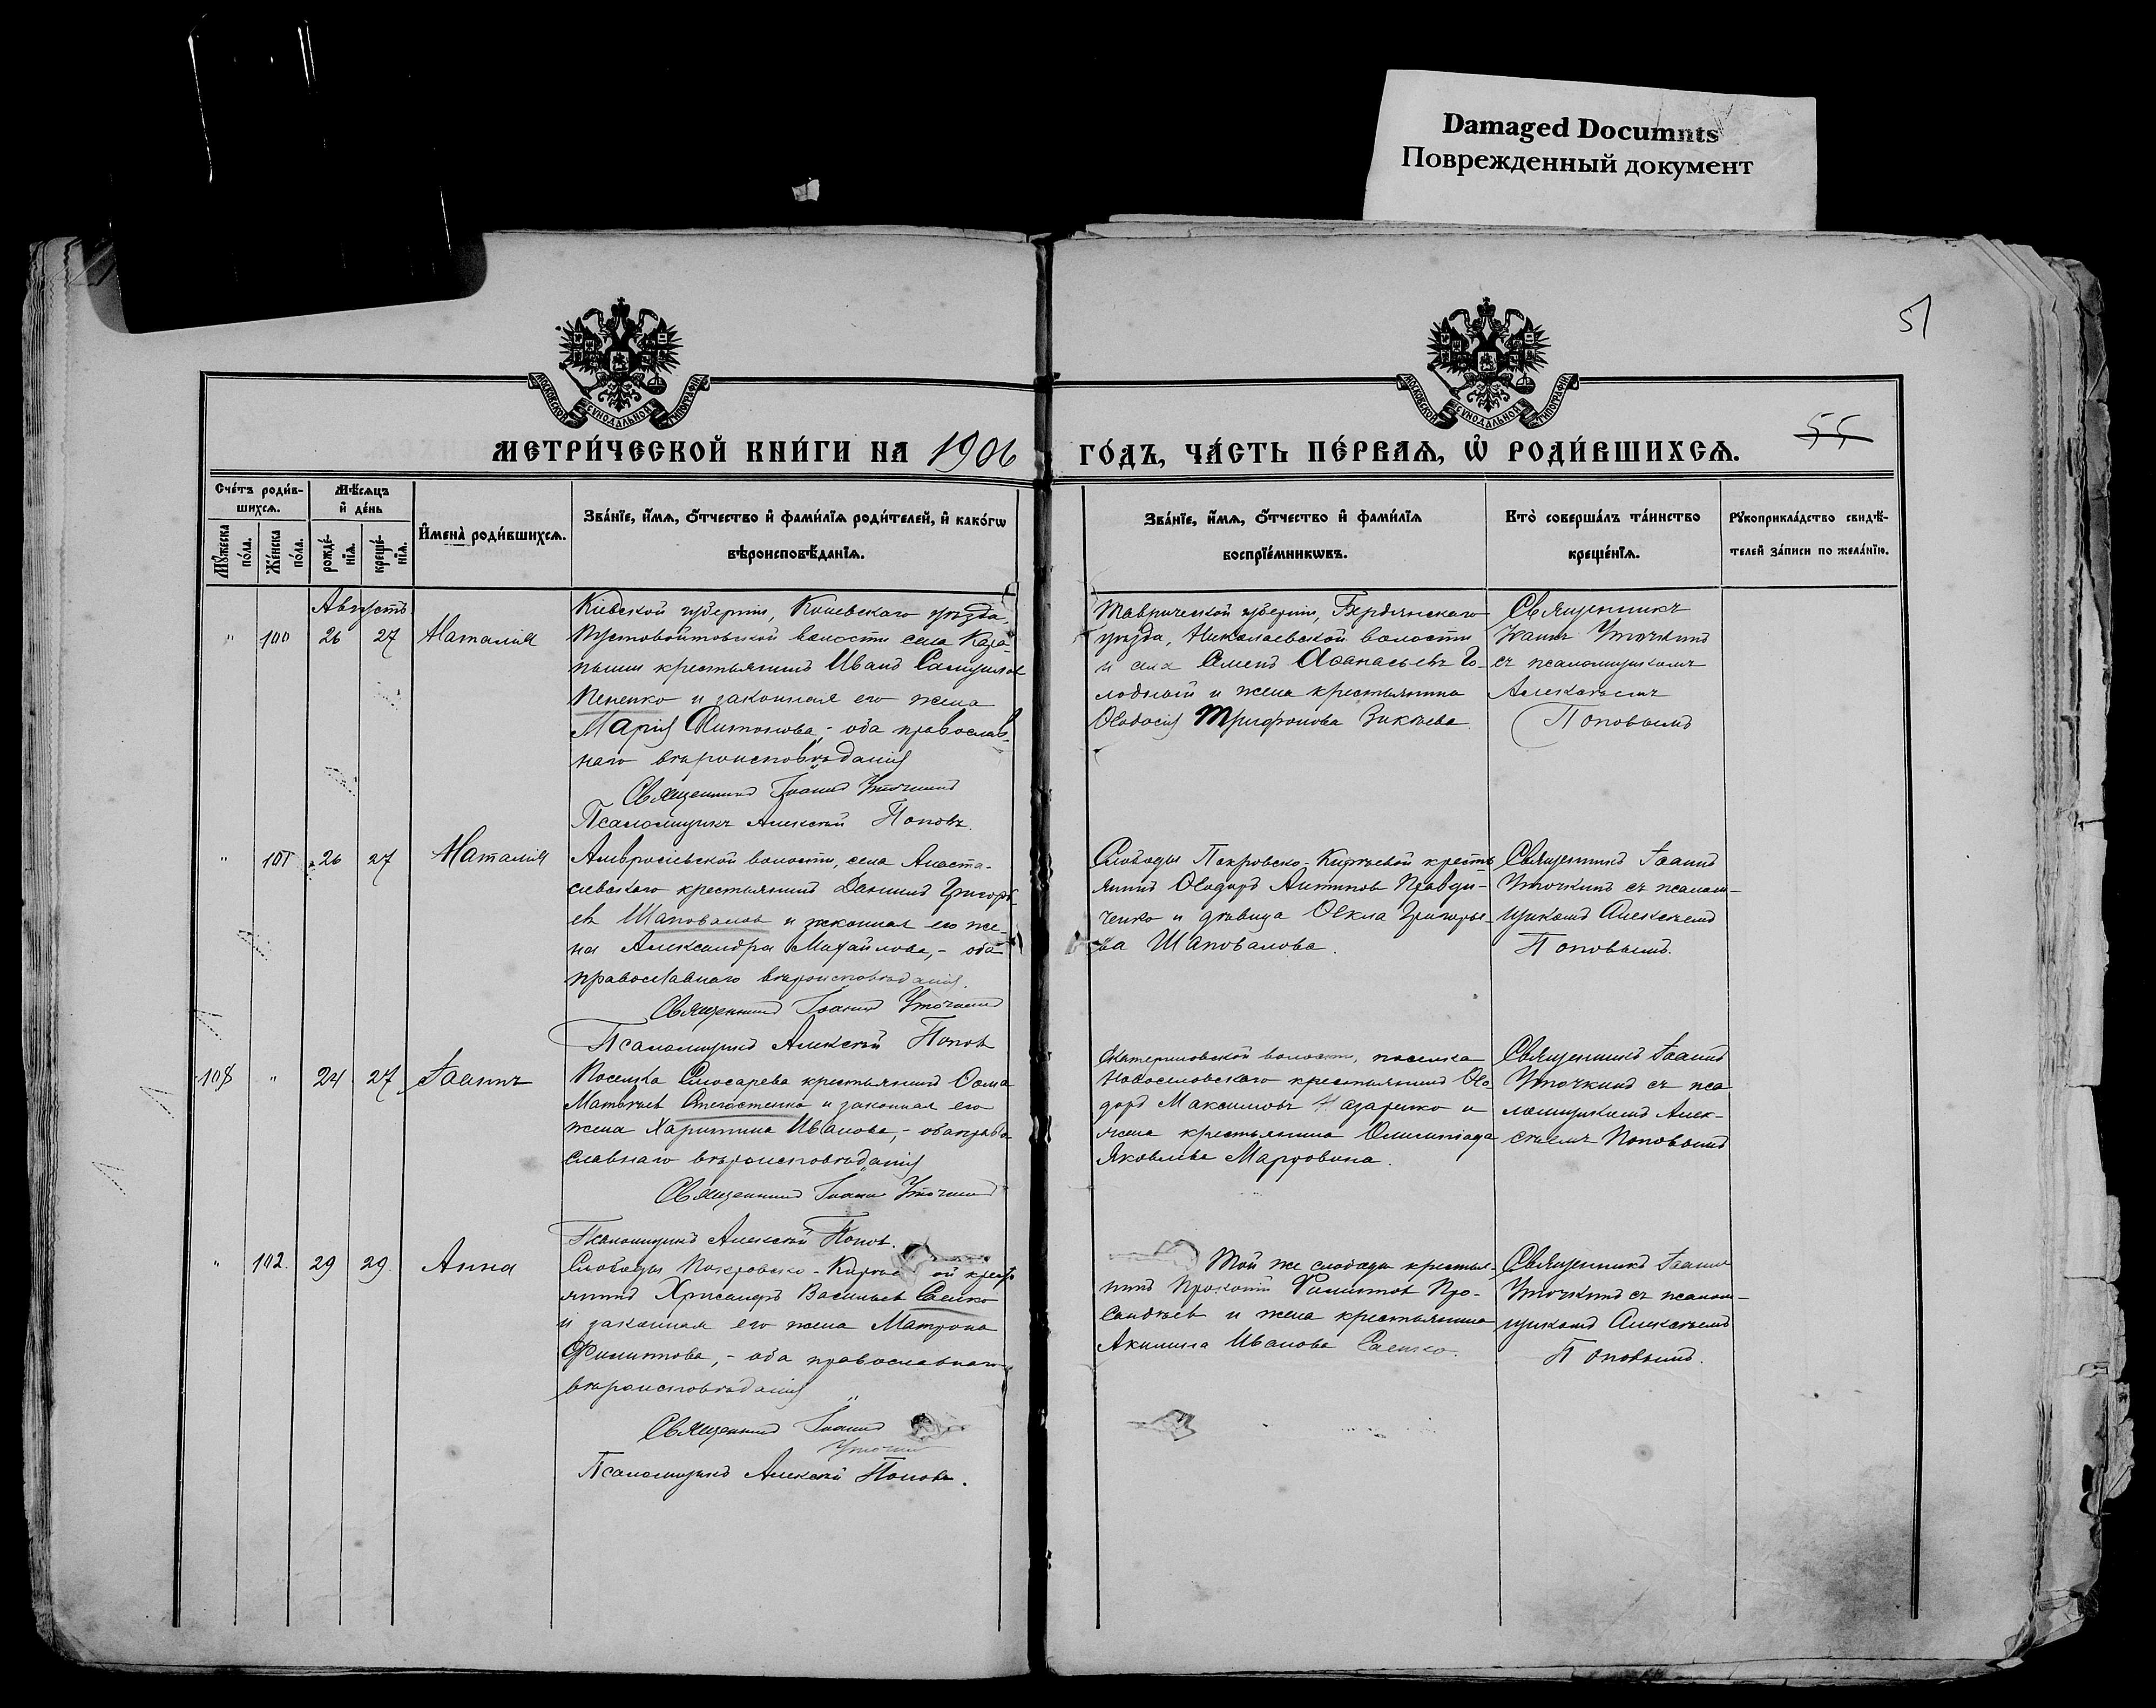 Damaged Documnts
Поврежденный документ
51
МОСКОВСКОЙ СѴНОДАЛЬНОЙ ТИПОГРАФІИ
МОСКОВСКОЙ СѴНОДАЛЬНОЙ ТИПОГРАФІИ
55
МЕТРИ́ЧЕСКОЙ КНИ́ГИ НА 1906 ГО́ДЪ, ЧА́СТЬ ПЕ́РВАѦ, Ѡ҆ РОДИ́ВШИХСѦ.
Сче́тъ роди́в-
шихсѧ.
Мꙋ́жеска по́ла.
Же́нска по́ла.
Мѣ́сѧцъ
и҆ де́нь
рожде́-нїѧ.
креще́-нїѧ.
И҆мена̀ роди́вшихсѧ.
Зва́нїе, и҆́мѧ, ѻ҆́тчество и҆ фами́лїѧ роди́телей, и҆ како́гѡ
вѣроисповѣ́данїѧ.
Зва́нїе, и҆́мѧ, ѻ҆́тчество и҆ фами́лїѧ
воспрїе́мникѡвъ.
Кто̀ соверша́лъ та́инство
креще́нїѧ.
Рꙋкоприкла́дство свидѣ́-
телей за́писи по жела́нїю.
Августъ
" 100 26 27 Наталія
Кіевской губерніи, Каневскаго уѣзда,
Пустовойтовской волости села
крестьянинъ Иванъ
и законная его жена
Марія Антонова, - оба православ-
наго вѣроисповѣданія
Священникъ Іоаннъ Уточкинъ
Псаломщикъ Алексѣй Поповъ.
Таврической губерніи, Бердянскаго
уѣзда, Николаевской волости
и села Семенъ Аѳанасьевъ Го-
лодный и жена крестьянина
Ѳеодосія Трифонова
Священникъ
Іоаннъ Уточкинъ
съ псаломщикомъ
Алексѣемъ
Поповымъ
" 101 26 27 Наталія
Амвросіевской волости, села Анаста-
сіевскаго крестьянинъ Даніилъ Григорь-
евъ Шаповалов и законная его же-
на Александра Михайлова, - оба
православнаго вѣроисповѣданія.
Священникъ Іоаннъ Уточкинъ
Псаломщикъ Алексѣй Попов
Слободы Покровско-Кирѣевой кресть
янинъ Ѳеодоръ Антипов Правди-
ченко и дѣвица Ѳекла Григорье-
ва Шаповалова.
Священникъ Іоаннъ
Уточкинъ съ псалом-
щикомъ Алексѣемъ
Поповымъ.
108 " 24 27 Іоаннъ
Поселка Слюсарева крестьянинъ Ѳома
Матвѣев и законная его
жена Харитина Иванова, - оба право
славнаго вѣроисповѣданія
Священникъ Іоаннъ Уточкинъ
Псаломщикъ Алексѣй Попов.
Екатериновской волости, поселка
Новоселовского крестьянинъ Ѳео-
доръ Максимовъ Назаренко и
жена крестьянина Олимпіада
Яковлева Мартовина.
Священникъ Іоаннъ
Уточкинъ съ пса
ломщикомъ Алек-
сѣемъ Поповымъ
" 102. 29 29. Анна
Слободы Покровско-Кирѣе ой крест
янинъ Хрисанфъ Васильев Саенко
и законная его жена Матрона
Филиппова, - оба православнаго
вѣроисповѣданія
Священникъ Іоаннъ
Уточкин
Псаломщикъ Алексѣй Поповъ.
Той же слободы крестья-
нинъ Прокопій Филиппов Про-
и жена крестьянина
Акилина Иванова Саенко.
Священникъ Іоаннъ
Уточкинъ съ псалом-
щикомъ Алексѣемъ
Поповымъ.